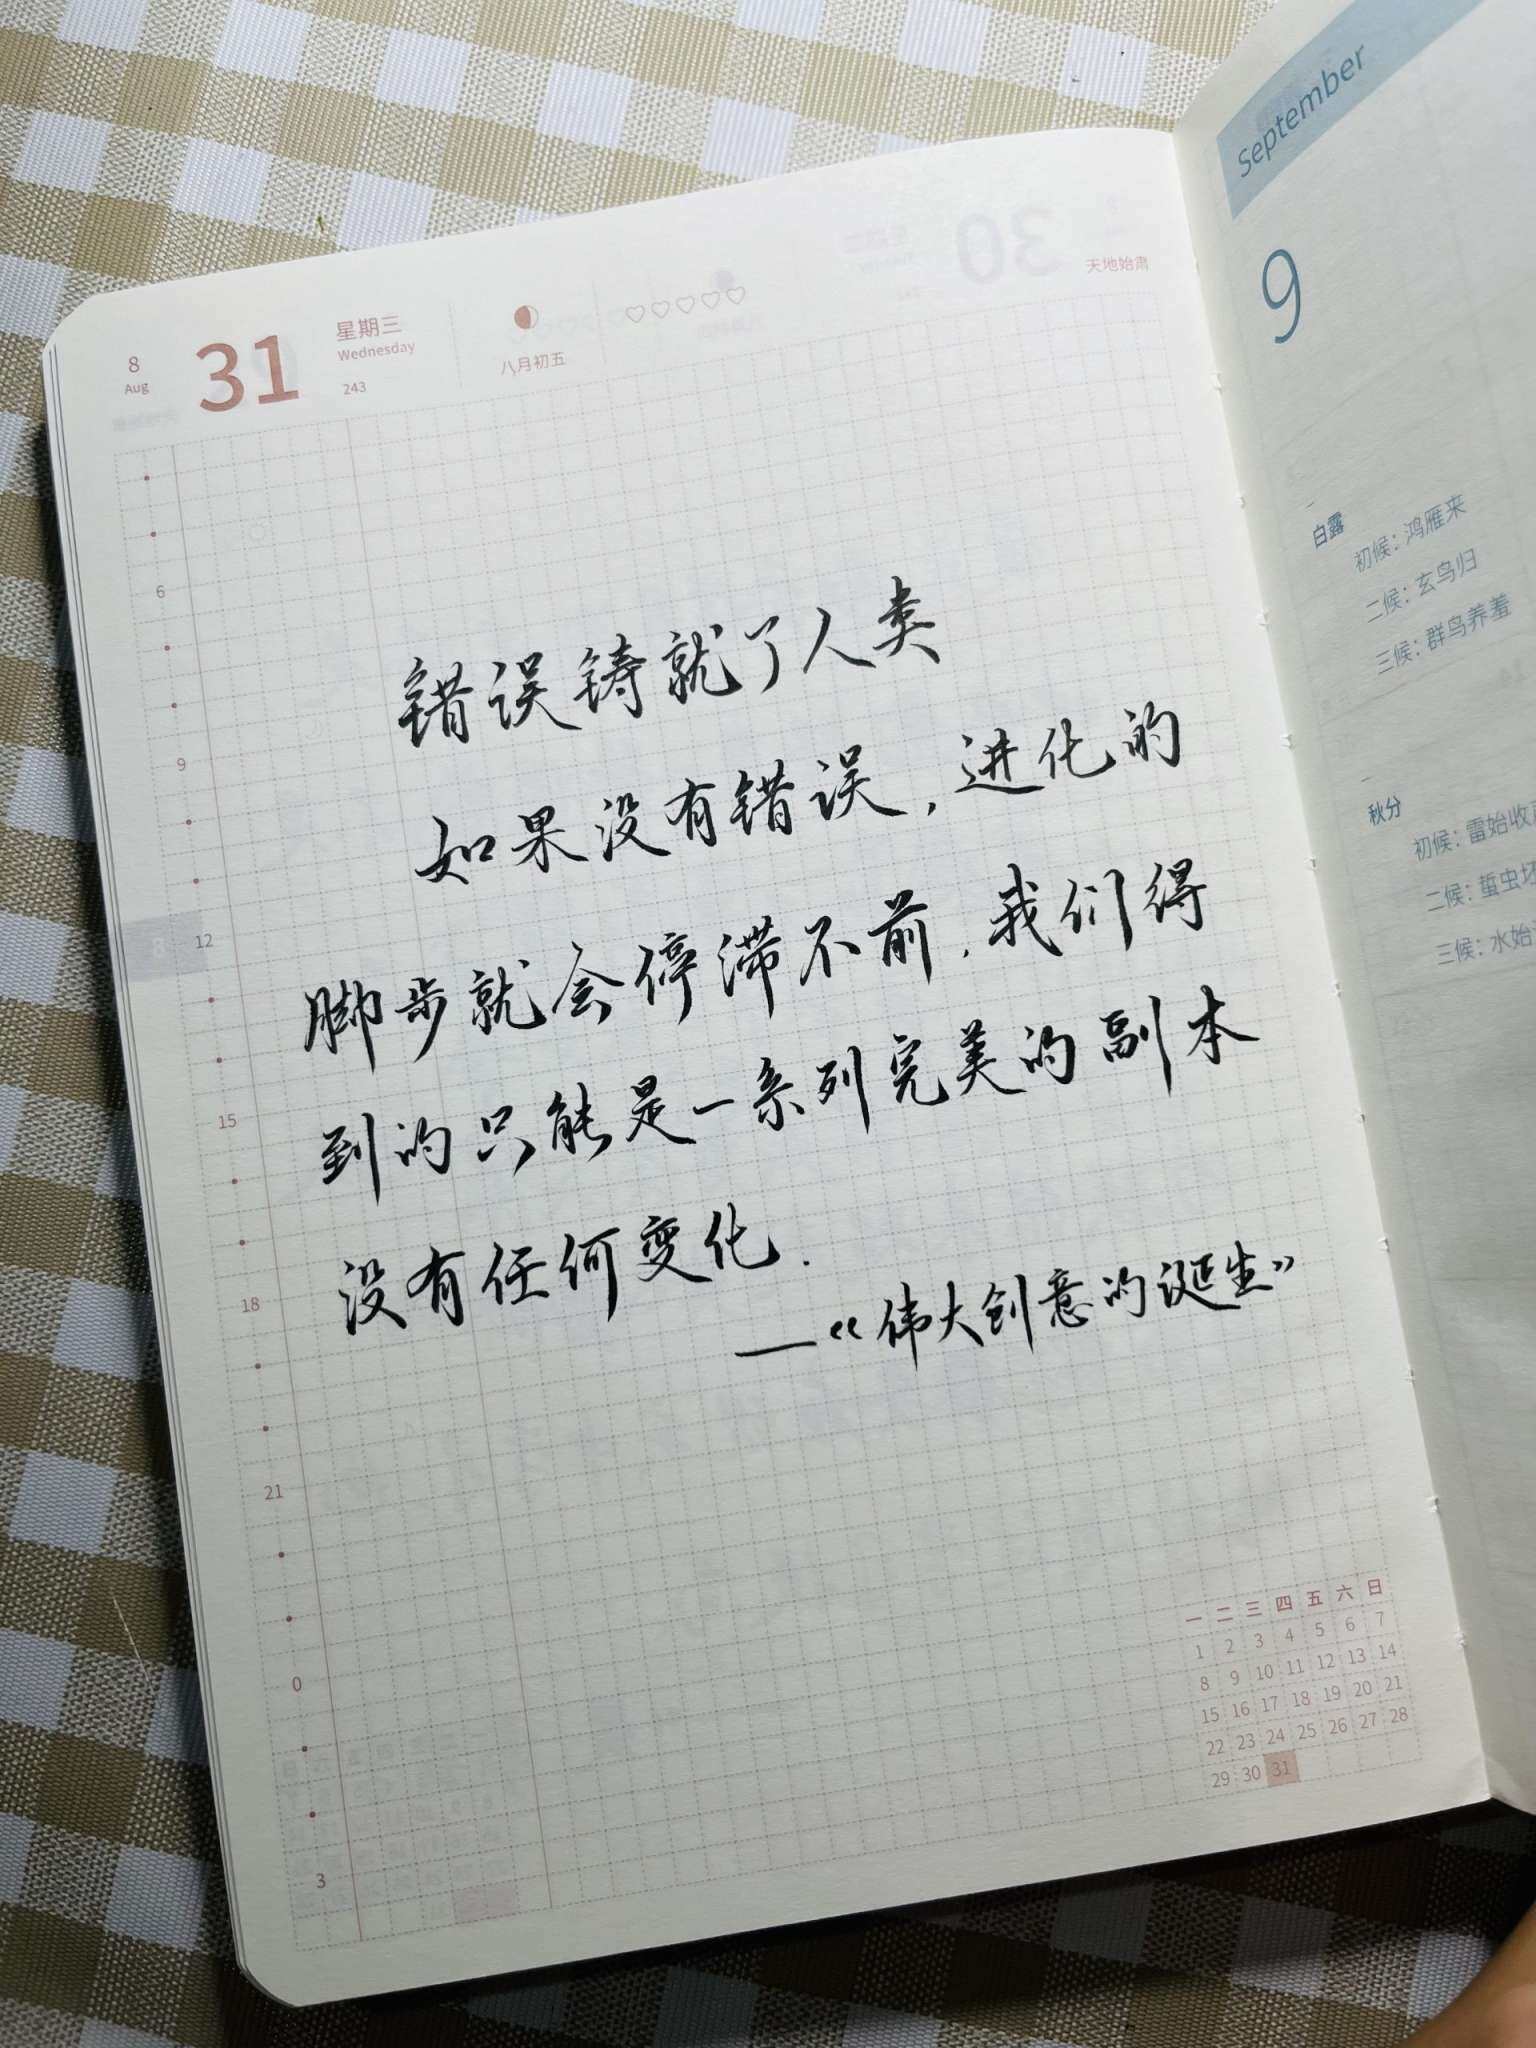 8
Aug
31
星期三
Wednesday
243
八月初五
30
天地始肃
6
9
12
15
18
21
0
3
错误铸就了人类
如果没有错误，进化的
脚步就会停滞不前，我们得
到的只能是一系列完美的副本
没有任何变化.
—《伟大创意的诞生》
一 二 三 四 五 六 日
1 2 3 4 5 6 7
8 9 10 11 12 13 14
15 16 17 18 19 20 21
22 23 24 25 26 27 28
29 30 31
September
9
白露
初候：鸿雁来
二候：玄鸟归
三候：群鸟养羞
秋分
初候：雷始收
二候：蛰虫坯
三候：水始